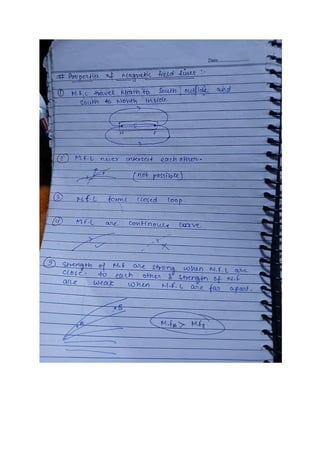 Date
# Properties of Magnetic field lines :-
① M.F.L travel North to South outside and
South to North Inside.
N S
② M.F.L never intersect each other.
(not possible)
③ M.F.L forms closed loop
④ M.F.L are continous curve
⑤ Strength of M.F are strong when M.F.L are
close to each other & strength of M.F
are weak when M.F.L are far apart.